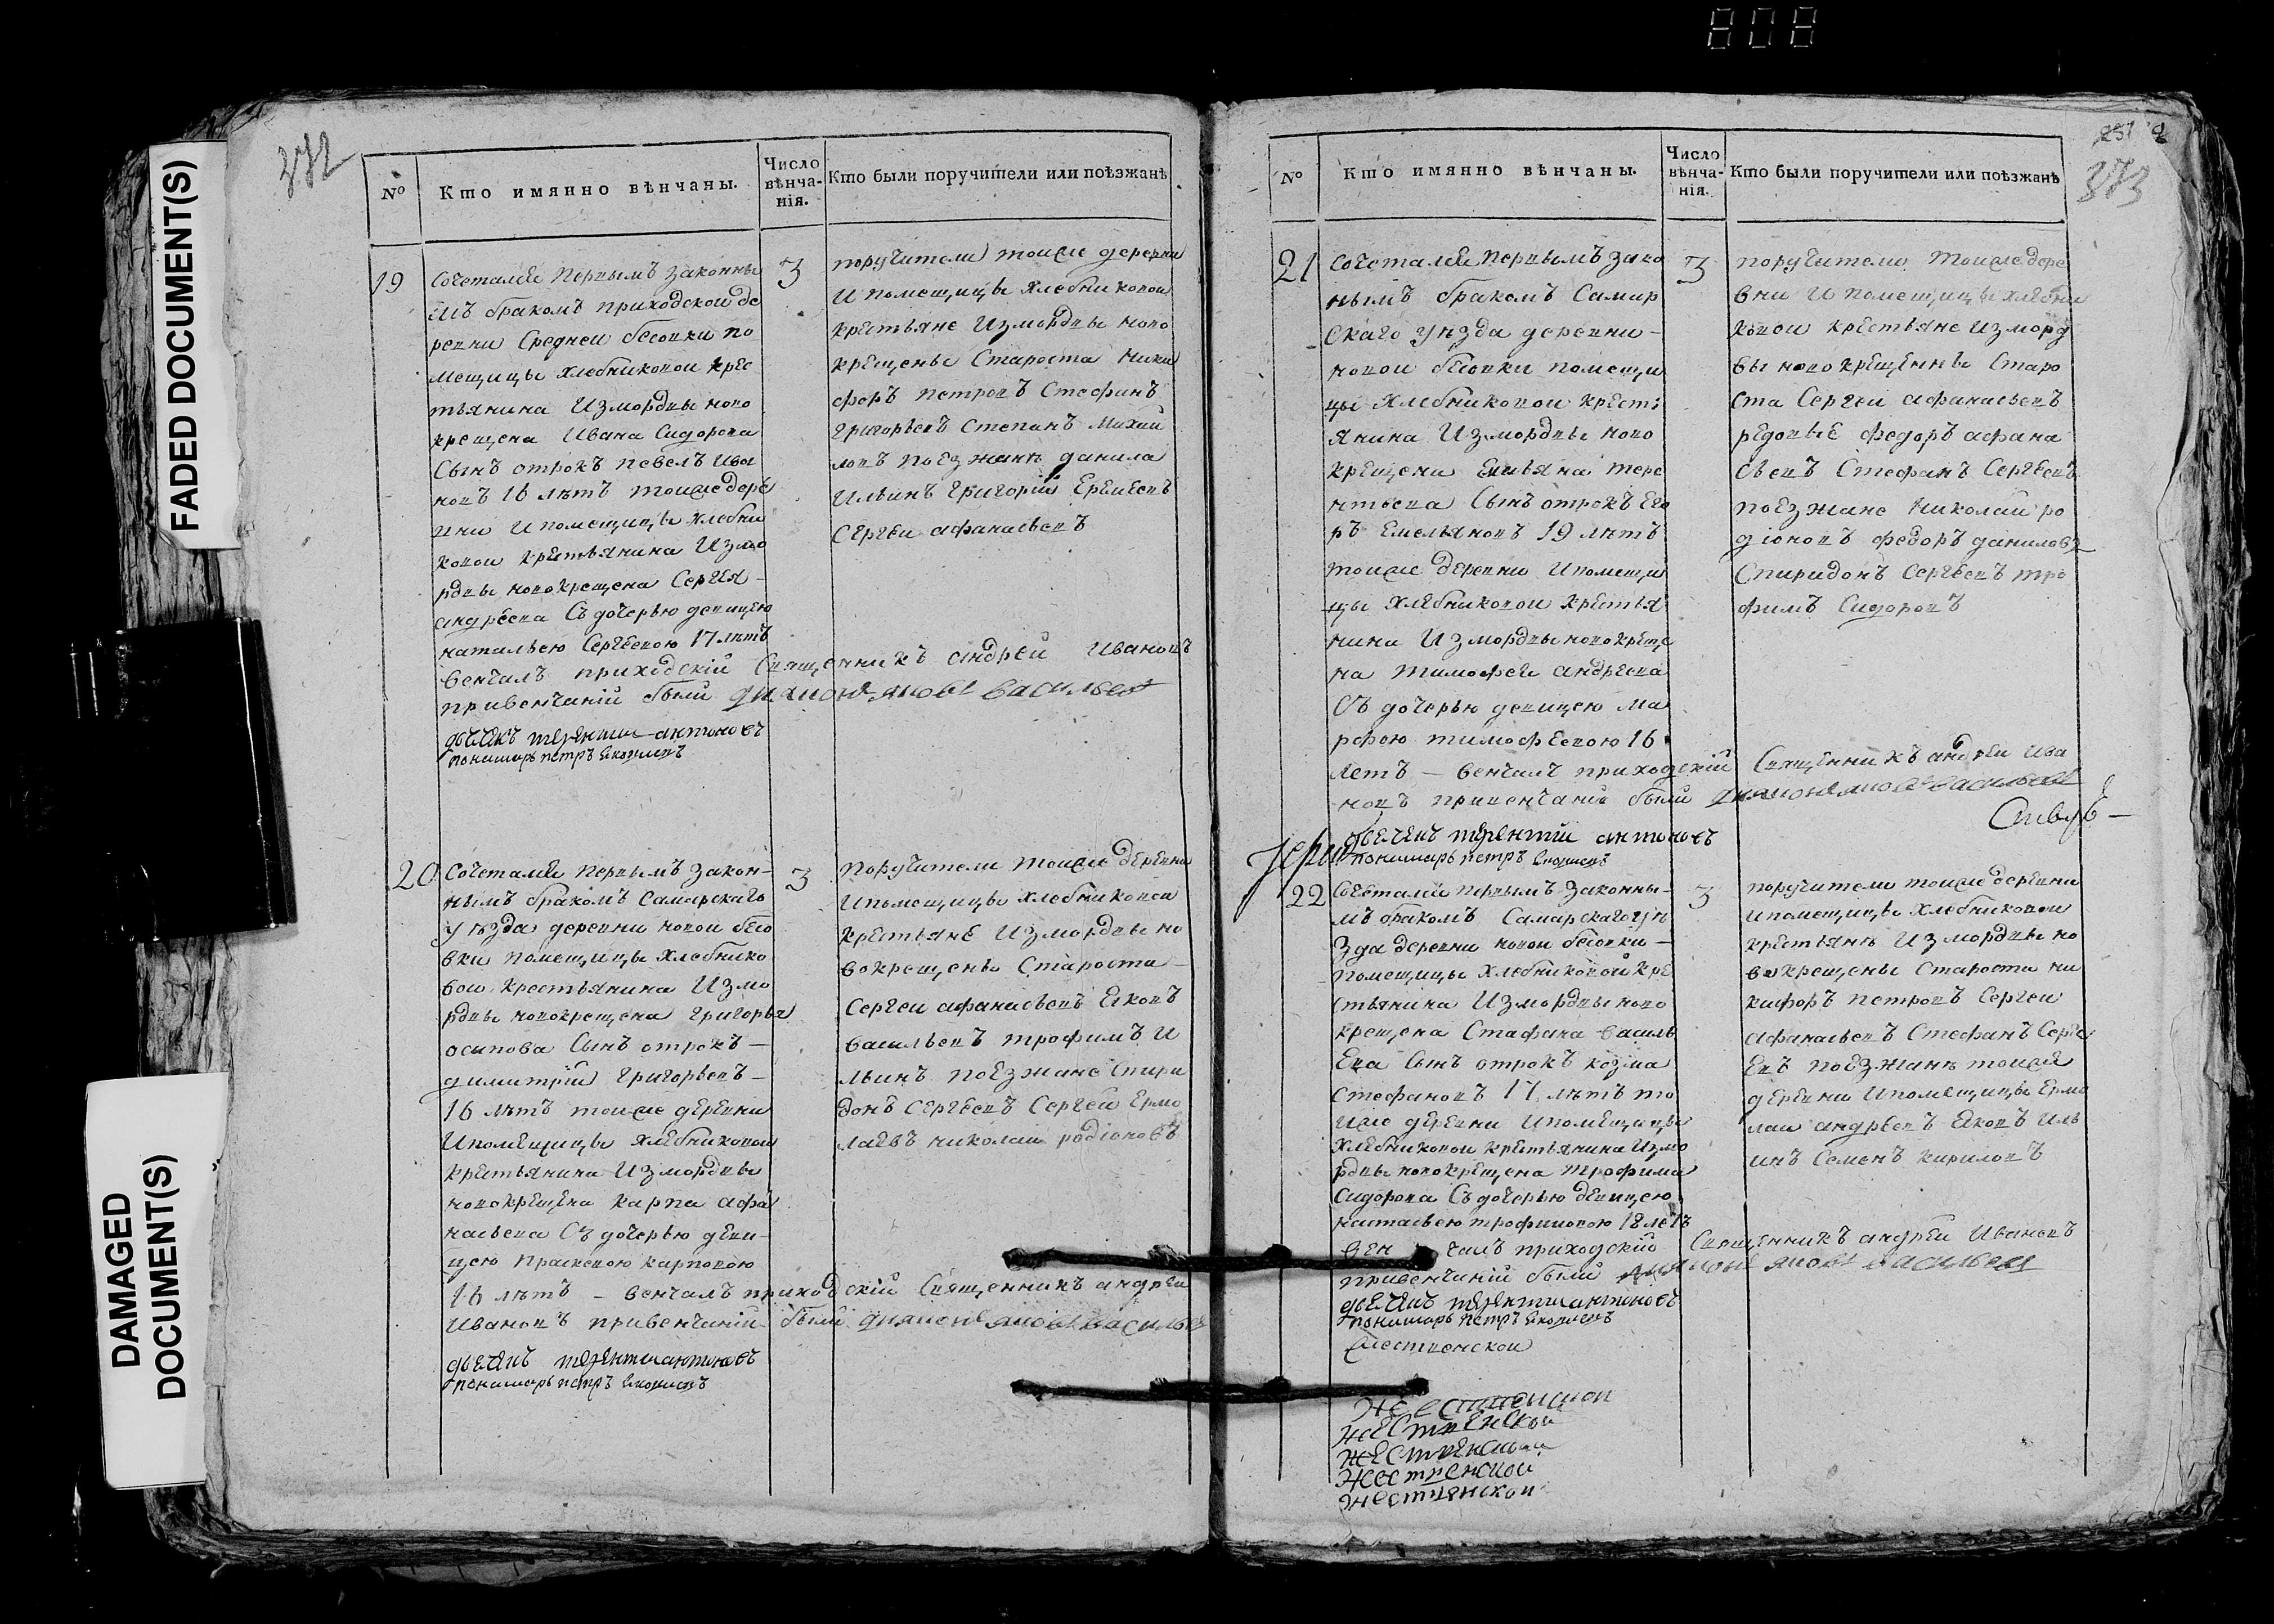 808
FADED DOCUMENT(S)
DAMAGED
DOCUMENT(S)
372
№
Кто имянно вѣнчаны.
Число
вѣнча-
нія.
Кто были поручители или поѣзжанѣ
19
Сочетались первымъ законны
мъ бракомъ приходской де
ревни Средней бесовки по
мещицы хлебниковой крес
тьянина Измордвы ново
крещена Ивана Сидорова
Сынъ отрокъ павелъ ива
новъ 16 лѣтъ тоиже дере
вни И помещицы хлебни
ковой крестьянина Измо
рдвы новокрещена Сергея
андреева Съ дочерью девицею
натальею Сергѣевою 17 лѣтъ
венчалъ приходскій Священникъ андрей Ивановъ
привенчаніи были
дьячекъ терентии антоновъ
пономарь петръ
3
поручители тоиже деревни
И помещицы хлебниковой
крестьяне Измордвы ново
крещены Староста Ники
форъ петровъ Стефанъ
григорьевъ Степанъ Михай
ловъ поезжанѣ данила
Ильинъ Григорій Еремеевъ
Сергеи афанасьевъ
20
Сочетались первымъ закон-
нымъ бракомъ Самарскаго
уѣзда деревни новой бесо
вки помещицы хлебнико
вои крестьянина Измо
рдвы новокрещена григорья
осипова Сынъ отрокъ —
димитрій григорьевъ —
16 лѣтъ тоиже деревни
И помещицы хлебниковой
крестьянина Измордвы
новокрещена карпа афа
насьева Съ дочерью деви-
цею прасковею карповою
16 лѣтъ — венчалъ приходскій Священникъ андрей
Ивановъ привенчаніи были
дьячекъ терентии антоновъ
пономарь петръ
3
поручители тоиже деревни
И помещицы хлебниковой
крестьяне Измордвы но
вокрещены Староста —
Сергеи афанасьевъ Яковъ
васильевъ трофимъ И
льинъ поезжане Спири
донъ Сергеевъ Сергей Ермо
лаевъ николаи родіоновъ
373
№
Кто имянно вѣнчаны.
Число
вѣнча-
нія.
Кто были поручители или поѣзжанѣ
21
Сочетались первымъ зако
нымъ бракомъ Самар
Скаго уѣзда деревни —
новой бесовки помещи
цы хлебниковой кресть
янина Измордвы ново
крещена Емельяна тере
нтьева Сынъ отрокъ Его
ръ Емельяновъ 19 лѣтъ
тоиже деревни И помещи
цы хлебниковой крестья
нина Измордвы новокреще
на тимофея андреева
Съ дочерью девицею ма
рфою тимофеевою 16
летъ — венчалъ приходскій Священникъ андрей Ива
новъ привенчаніи были
дьячекъ терентій антоновъ
пономарь петръ
3
поручители тоиже дере
вни И помещицы хлебни
ковой крестьяне Изморд
вы новокрещенны Старо
Ста Сергеи афанасьевъ
федоръ афана
Сьевъ Стефанъ Сергеевъ
поезжане Николай ро
діоновъ федоръ даниловъ
Спиридонъ Сергеевъ тро
фимъ Сидоровъ
22
Сочетались первымъ законны-
мъ бракомъ Самарскаго уѣ
зда деревни новой бесовки —
помещицы хлебниковой кре
стьянина Измордвы ново
крещена Стафана василь
Ева Сынъ отрокъ козма
Стефановъ 17 лѣтъ то
иже деревни И помещицы
хлебниковой крестьянина Измо
рдвы новокрещена трофима
Сидорова Съ дочерью девицею
настасьею трофимовою 18 летъ
венчалъ приходскій Священникъ андрей Ивановъ
привенчаніи были
дьячекъ терентии антоновъ
пономарь петръ
3
поручители тоиже деревни
И помещицы хлебниковой
крестьянѣ Измордвы но
вокрещены Староста ни
кифоръ петровъ Сергеи
афанасьевъ Стефанъ Серге
Евъ поезжанѣ тоиже
деревни И помещицы Ермо
лаи андреевъ Яковъ Иль
инъ Семенъ кириловъ